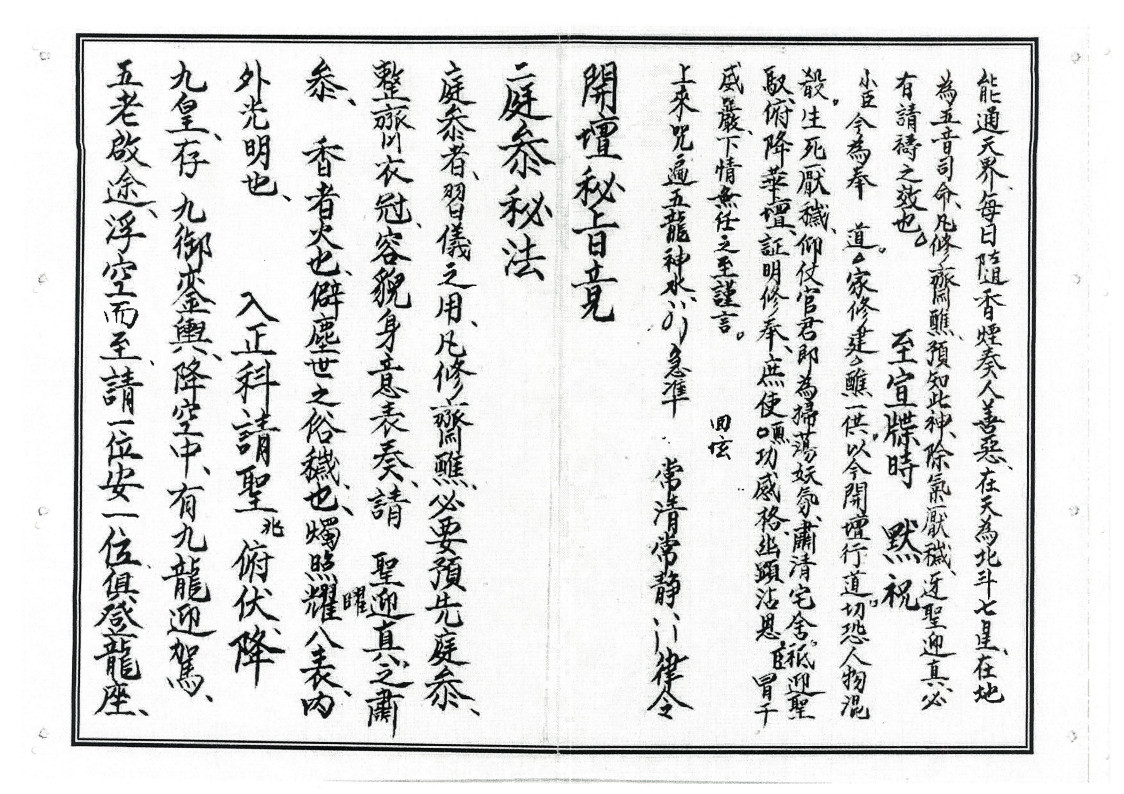 能通天界、每日隨香煙奏人善惡、在天為北斗七星、在地
為五音司命、凡修齋醮、預知此神、除氣厭穢、迎聖迎真、必
有請禱之效也。 至宣牒時 默祝
小臣 今為奉 道。々家修建々醮一供。以今開壇行道。切恐人物混
殽、生死厭穢、仰仗官君即為掃蕩妖氛、肅清宅舍。祇迎聖
馭、俯降華壇、証明修奉、庶使○頭功感格、幽顕沾恩、臣冒干
威嚴、下情無任之至謹言。 回坛
上來咒遍五龍神水 急準 常清常靜 律令
開壇秘旨竟
二庭叅秘法
庭叅者、習儀之用、凡修齋醮、必要預先庭叅、
整齊衣冠、容貌身意表奏、請 聖迎真、之肅
叅、 香者火也、僻塵世之俗穢也、燭照耀曜八表、内
外光明也、 入正科請聖 兆俯伏、降
九皇、存 九御鸾輿、降空中、有九龍迎駕、
五老啟途、浮空而至、請一位安一位俱登龍座、